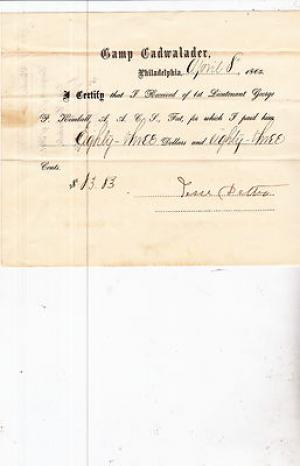 Camp Cadwalader,
Philadelphia, April 8 1862.
I Certify that I Received of 1st Lieutenant George
P. Kimball, A. A. C. S., Fat, for which I paid him
Eighty-three Dollars and eighty-three
Cents.
$ 83.83